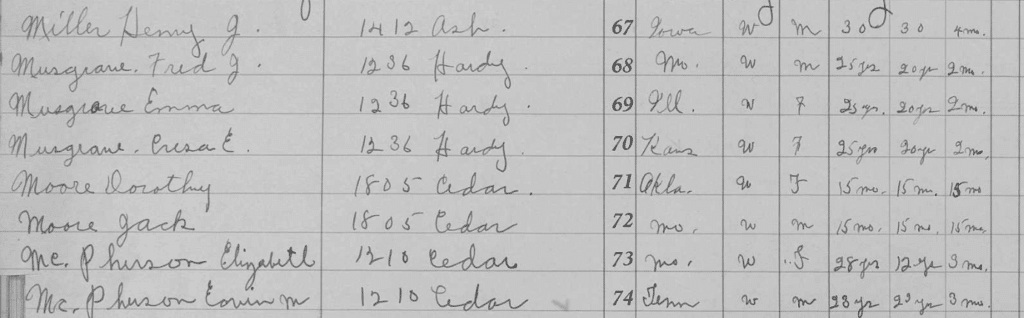 Miller Henry J. 1412 Ash. 67 Iowa W M 30 30 4 mo.
Musgrave. Fred J. 1236 Hardy. 68 Mo. W M 25 yrs 20 yr 2 mo.
Musgrove Emma 1236 Hardy. 69 Ill. W F 25 yr. 20 yr 2 mo.
Musgrave. E. 1236 Hardy. 70 Kans W F 25 yrs 20 yr 2 mo.
Moore Dorothy 1805 Cedar. 71 Okla. W F 15 mo. 15 mo. 15 mo
Moore Jack 1805 Cedar 72 Mo. W M 15 mo. 15 mo. 15 mo.
Mc. Pherson Elizabeth 1210 Cedar 73 Mo. W F 28 yrs 12 yr 3 mo.
Mc. Pherson M 1210 Cedar 74 Tenn W M 23 yr 23 yr 3 mo.